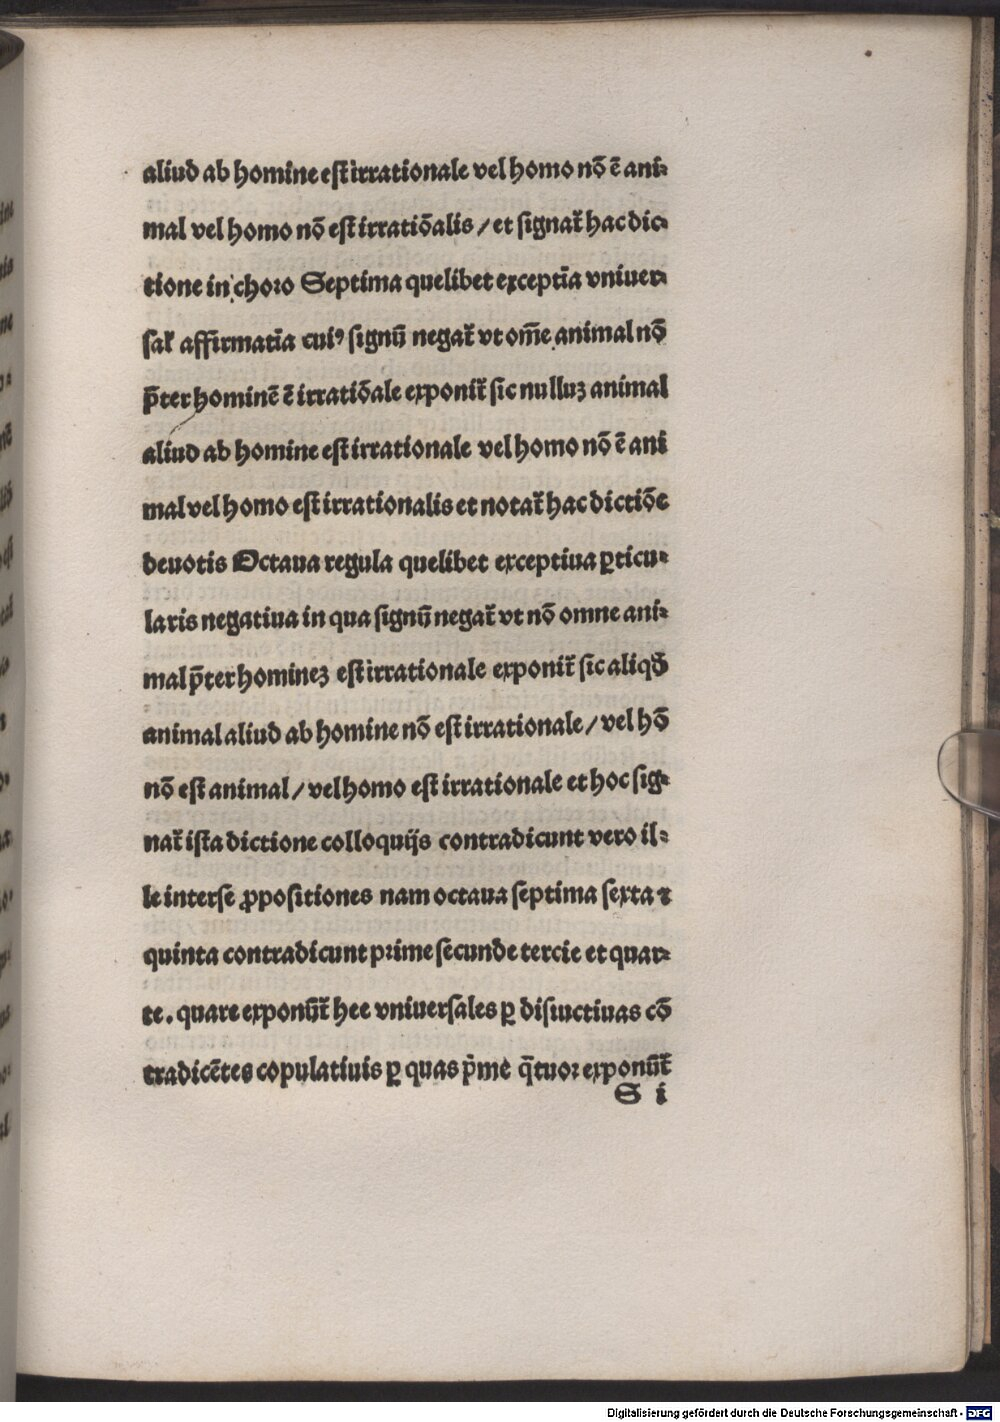 aliud ab homine est irrationale vel homo nō ē ani-
mal vel homo nō est irratiōalis / et signat᷑ hac dic-
tione in choro Septima quelibet exceptīa vniuer-
sal᷑ affirmatīa cuiꝰ signū negat᷑ vt om̄e animal nō
p̄ter hominē ē irratiōale exponit᷑ sic nulluꝫ animal
aliud ab homine est irrationale vel homo nō ē ani
mal vel homo est irrationalis et notat᷑ hac dictiōe
deuotis Octaua regula quelibet exceptiua ꝑticu-
laris negatiua in qua signū negat᷑ vt nō omne ani-
mal p̄ter homineꝫ est irrationale exponit᷑ sic aliqḋ
animal aliud ab homine nō est irrationale / vel hō
nō est animal / vel homo est irrationale et hoc sig-
nat᷑ ista dictione colloquijs contradicunt vero il-
le interse ꝓpositiones nam octaua septima sexta ⁊
quinta contradicunt prime secunde tercie et quar-
te. quare exponūt᷑ hee vniuersales ꝑ disiuctiuas cō
tradicētes copulatiuis ꝑ quas p̄me q̄tuor exponūt᷑
S i
Digitalisierung gefördert durch die Deutsche Forschungsgemeinschaft - DFG